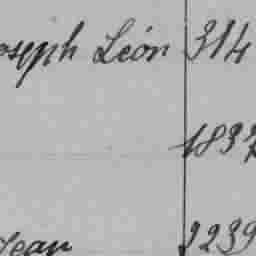 Joseph Léon 314
1837
Jean 2239